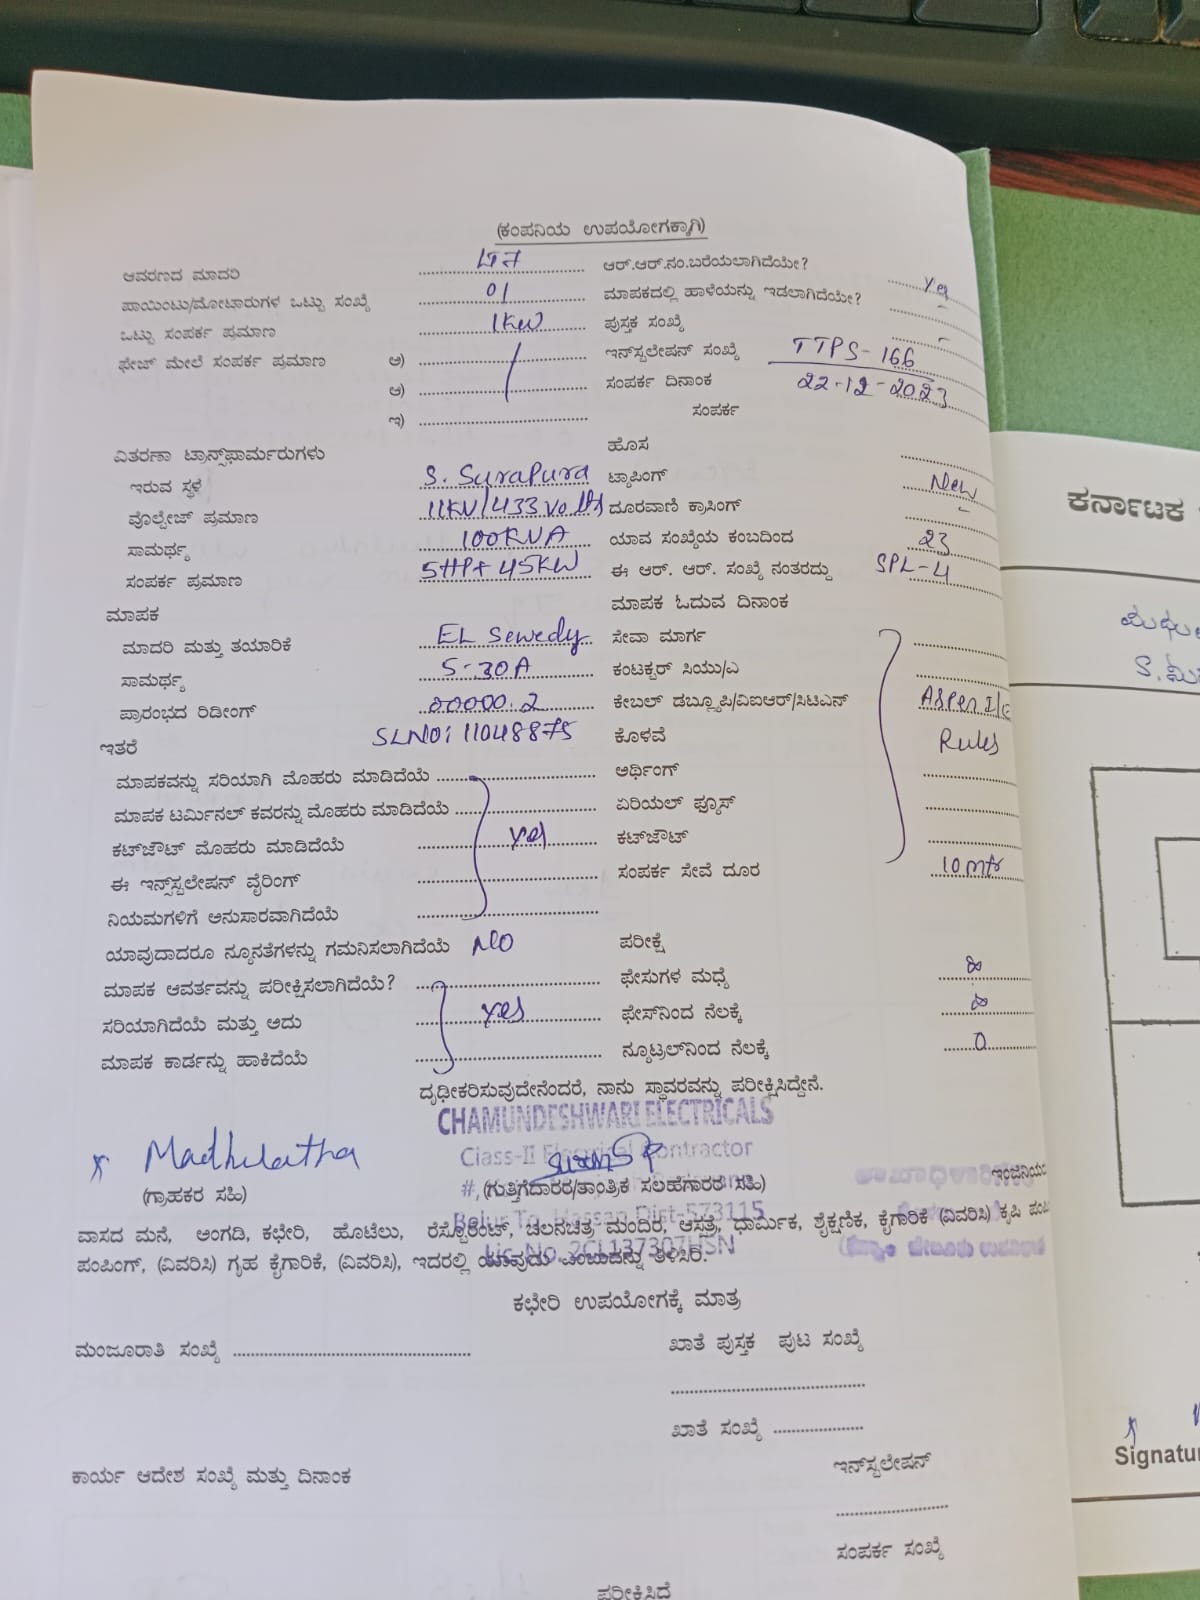 (ಕಂಪನಿಯ ಉಪಯೋಗಕ್ಕಾಗಿ)
ಆವರಣದ ಮಾದರಿ ಆರ್.ಆರ್.ನಂ.ಬರೆಯಲಾಗಿದೆಯೇ? Yes
ಪಾಯಿಂಟು/ಮೋಟಾರುಗಳ ಒಟ್ಟು ಸಂಖ್ಯೆ 01 ಮಾಪಕದಲ್ಲಿ ಹಾಳೆಯನ್ನು ಇಡಲಾಗಿದೆಯೇ? -
ಒಟ್ಟು ಸಂಪರ್ಕ ಪ್ರಮಾಣ 1KW ಪುಸ್ತಕ ಸಂಖ್ಯೆ -
ಫೇಜ್ ಮೇಲೆ ಸಂಪರ್ಕ ಪ್ರಮಾಣ ಅ) ಇನ್‌ಸ್ಟಲೇಷನ್ ಸಂಖ್ಯೆ TTPS-166
ಆ) ಸಂಪರ್ಕ ದಿನಾಂಕ 22-12-2023
ಇ) ಸಂಪರ್ಕ
ವಿತರಣಾ ಟ್ರಾನ್ಸ್‌ಫಾರ್ಮರುಗಳು ಹೊಸ
ಇರುವ ಸ್ಥಳ S. Surapura ಟ್ಯಾಪಿಂಗ್ New
ವೊಲ್ಟೇಜ್ ಪ್ರಮಾಣ 11KV/433 Volts ದೂರವಾಣಿ ಕ್ರಾಸಿಂಗ್ -
ಸಾಮರ್ಥ್ಯ 100KVA ಯಾವ ಸಂಖ್ಯೆಯ ಕಂಬದಿಂದ 23
ಸಂಪರ್ಕ ಪ್ರಮಾಣ 5HP+45KW ಈ ಆರ್. ಆರ್. ಸಂಖ್ಯೆ ನಂತರದ್ದು SPL-4
ಮಾಪಕ ಮಾಪಕ ಓದುವ ದಿನಾಂಕ
ಮಾದರಿ ಮತ್ತು ತಯಾರಿಕೆ EL Sewedy ಸೇವಾ ಮಾರ್ಗ
ಸಾಮರ್ಥ್ಯ 5-30A ಕಂಟಕ್ಟರ್ ಸಿಯು/ಎ
ಪ್ರಾರಂಭದ ರಿಡೀಂಗ್ 00000.2 ಕೇಬಲ್ ಡಬ್ಲ್ಯೂಪಿ/ವಿಐಆರ್/ಸಿಟಿಎನ್ ASPer I/E
ಇತರೆ SLNO: 11048875 ಕೊಳವೆ Rules
ಮಾಪಕವನ್ನು ಸರಿಯಾಗಿ ಮೊಹರು ಮಾಡಿದೆಯೆ ಅರ್ಥಿಂಗ್
ಮಾಪಕ ಟರ್ಮಿನಲ್ ಕವರನ್ನು ಮೊಹರು ಮಾಡಿದೆಯೆ ಏರಿಯಲ್ ಫ್ಯೂಸ್
ಕಟ್‌ಔಟ್ ಮೊಹರು ಮಾಡಿದೆಯೆ Yes ಕಟ್‌ಔಟ್
ಈ ಇನ್ಸ್‌ಸ್ಟಲೇಷನ್ ವೈರಿಂಗ್ ಸಂಪರ್ಕ ಸೇವೆ ದೂರ 10mtr
ನಿಯಮಗಳಿಗೆ ಅನುಸಾರವಾಗಿದೆಯೆ
ಯಾವುದಾದರೂ ನ್ಯೂನತೆಗಳನ್ನು ಗಮನಿಸಲಾಗಿದೆಯೆ NO ಪರೀಕ್ಷೆ
ಮಾಪಕ ಆವರ್ತವನ್ನು ಪರೀಕ್ಷಿಸಲಾಗಿದೆಯೆ? ಫೇಸುಗಳ ಮಧ್ಯೆ ∞
ಸರಿಯಾಗಿದೆಯೆ ಮತ್ತು ಅದು Yes ಫೇಸ್‌ನಿಂದ ನೆಲಕ್ಕೆ ∞
ಮಾಪಕ ಕಾರ್ಡನ್ನು ಹಾಕಿದೆಯೆ ನ್ಯೂಟ್ರಲ್‌ನಿಂದ ನೆಲಕ್ಕೆ 0
ದೃಢೀಕರಿಸುವುದೇನೆಂದರೆ, ನಾನು ಸ್ಥಾವರವನ್ನು ಪರೀಕ್ಷಿಸಿದ್ದೇನೆ.
CHAMUNDESHWARI ELECTRICALS
Madhulatha Class-II Electrical Contractor
(ಗ್ರಾಹಕರ ಸಹಿ) (ಗುತ್ತಿಗೆದಾರರ/ತಾಂತ್ರಿಕ ಸಲಹೆಗಾರರ ಸಹಿ) ಇಂಜಿನಿಯರ
Belur Tq, Hassan Dist-573115
ವಾಸದ ಮನೆ, ಅಂಗಡಿ, ಕಛೇರಿ, ಹೊಟೇಲು, ರೆಸ್ಟೊರೆಂಟ್, ಚಲನಚಿತ್ರ, ಮಂದಿರ, ಆಸ್ಪತ್ರೆ, ಧಾರ್ಮಿಕ, ಶೈಕ್ಷಣಿಕ, ಕೈಗಾರಿಕೆ (ವಿವರಿಸಿ) ಕೃಷಿ ಪಂಪ
Lic. No. 2CL137307HSN
ಪಂಪಿಂಗ್, (ವಿವರಿಸಿ) ಗೃಹ ಕೈಗಾರಿಕೆ, (ವಿವರಿಸಿ), ಇದರಲ್ಲಿ ಯಾವುದು ಎಂಬುದನ್ನು ತಿಳಿಸಿರಿ.
ಕಛೇರಿ ಉಪಯೋಗಕ್ಕೆ ಮಾತ್ರ
ಮಂಜೂರಾತಿ ಸಂಖ್ಯೆ ಖಾತೆ ಪುಸ್ತಕ ಪುಟ ಸಂಖ್ಯೆ
ಖಾತೆ ಸಂಖ್ಯೆ
ಕಾರ್ಯ ಆದೇಶ ಸಂಖ್ಯೆ ಮತ್ತು ದಿನಾಂಕ ಇನ್‌ಸ್ಟಲೇಷನ್
ಸಂಪರ್ಕ ಸಂಖ್ಯೆ
ಪರೀಕ್ಷಿಸಿದೆ
ಕರ್ನಾಟಕ
Signatu